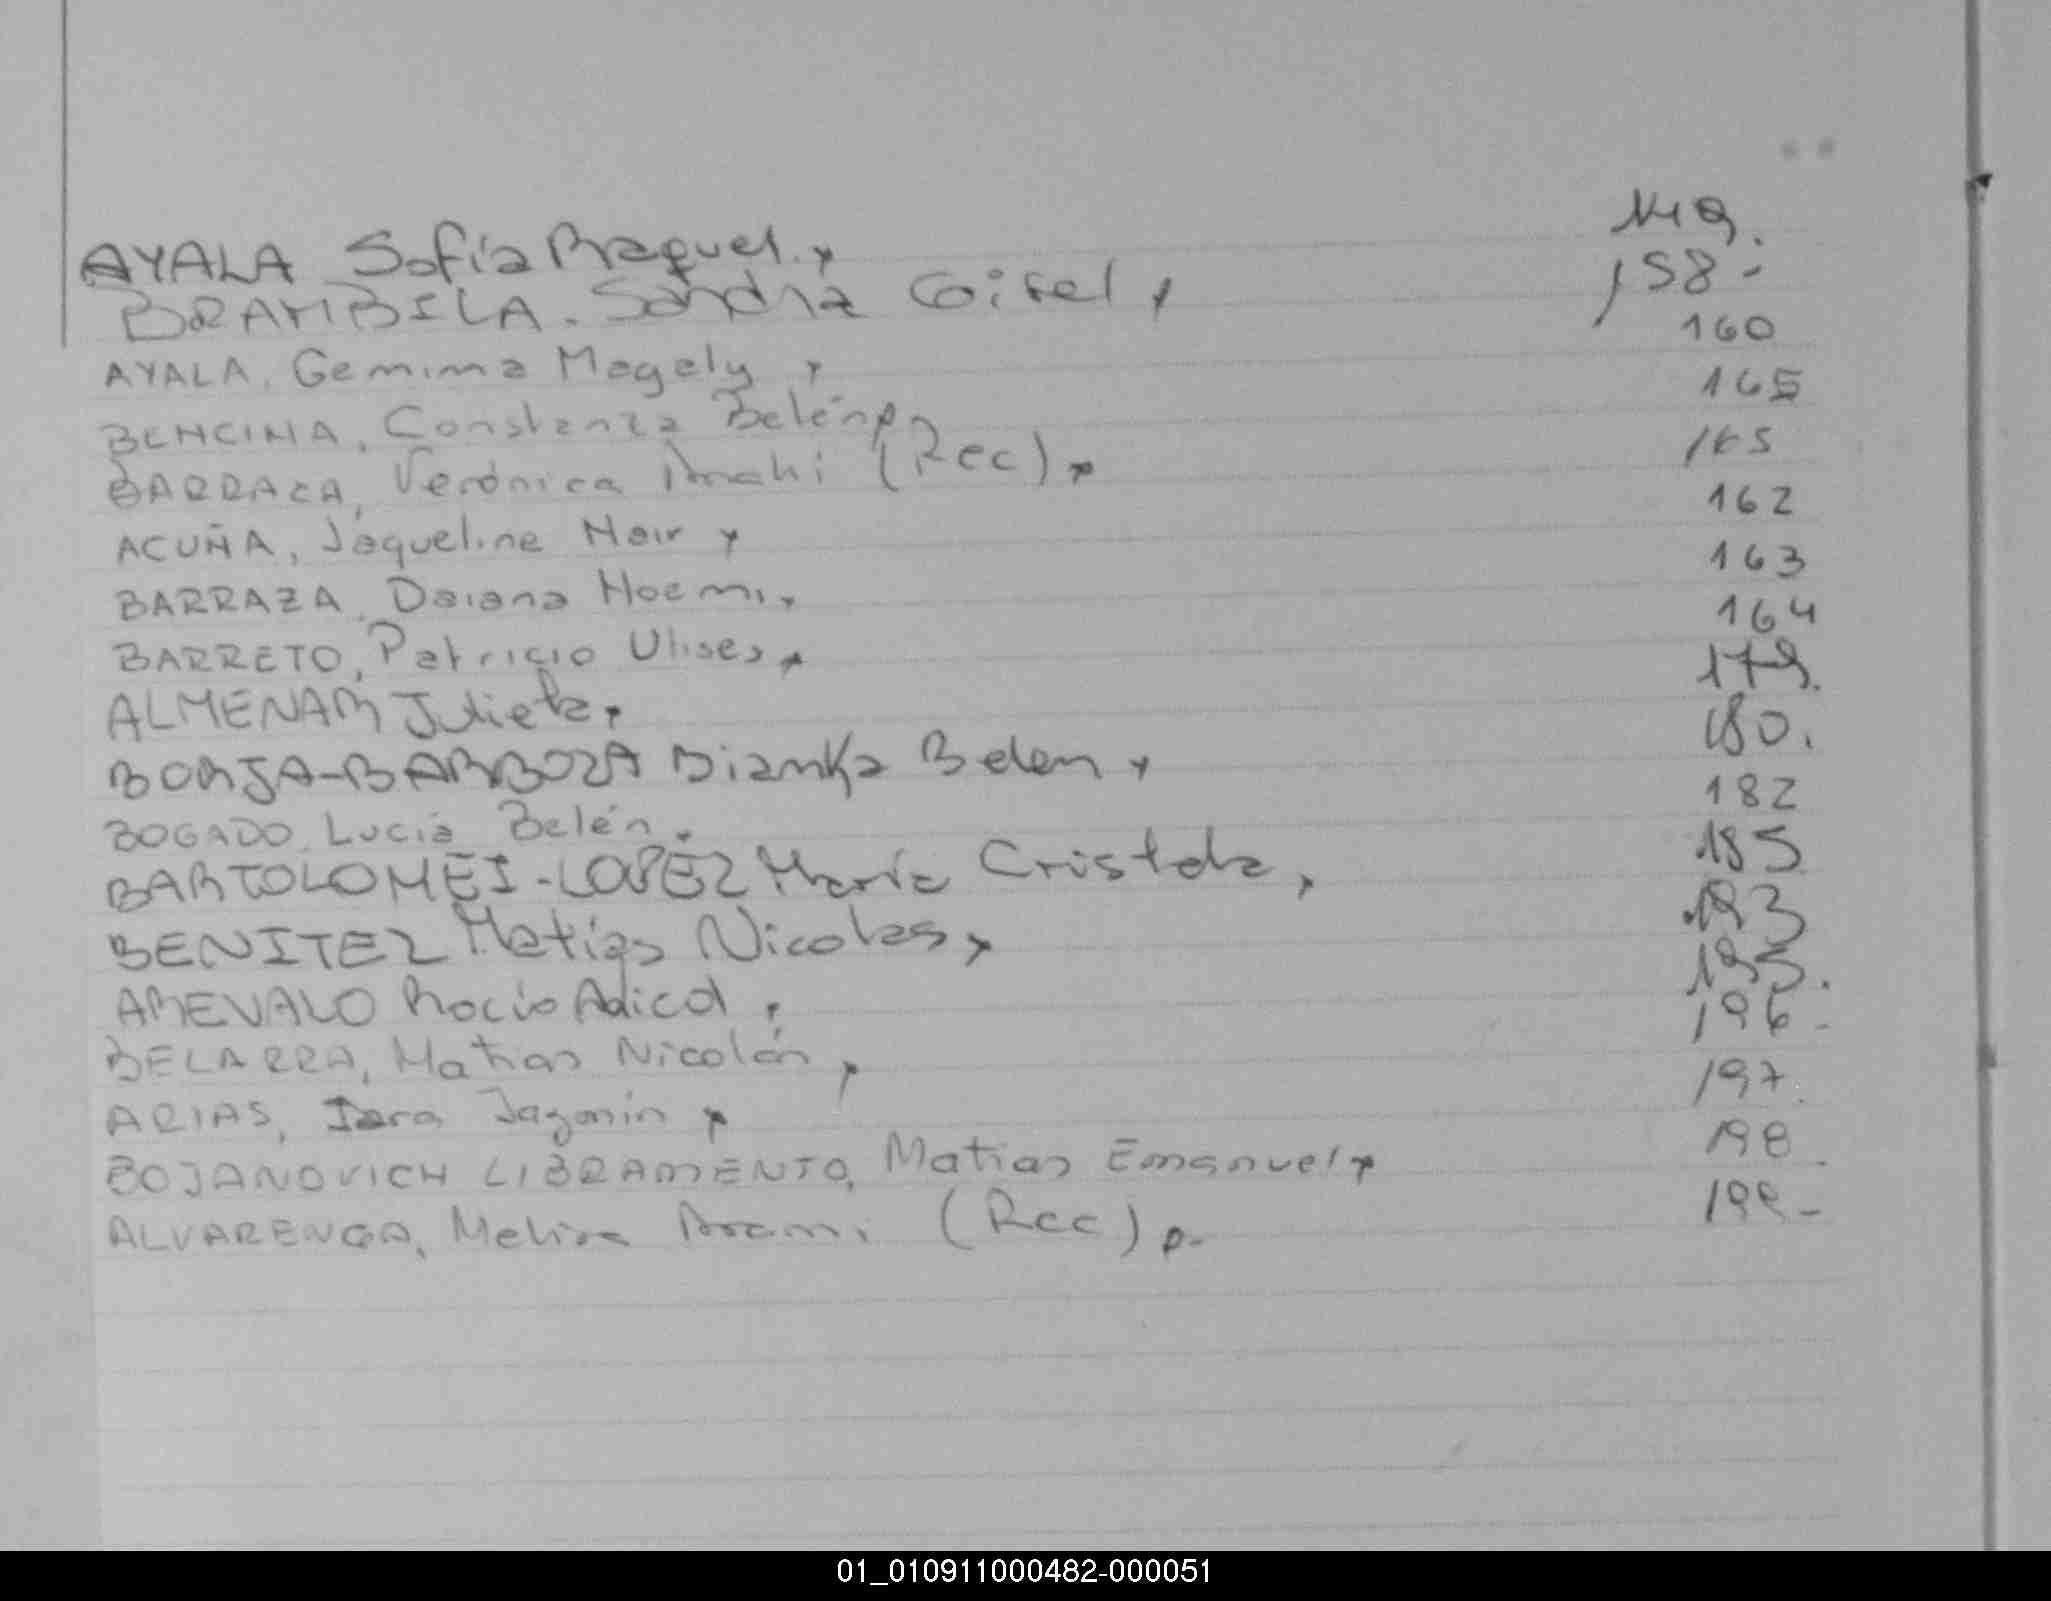 AYALA Sofía Raquel. 149.
BRAMBILA. Sandra Gisel, 158-
AYALA, Gemima Magaly, 160
BENCINA, Constanza Belén, 165
BARRAZA, Verónica Anahi (Rec), 165
ACUÑA, Jaqueline Nair, 162
BARRAZA, Daiana Noemi, 163
BARRETO, Patricio Ulises, 164
ALMENAR Julieta, 179.
BORJA-BARBOZA Bianka Belen, 180.
BOGADO, Lucía Belén. 182
BARTOLOMEI-LOPEZ María Cristela, 185
BENITEZ Matías Nicolas, 193
AREVALO Rocío 195.
BELARRA, Matias Nicolás, 196-
ARIAS, Iara Jazmín, 197.
BOJANOVICH LIBRAMENTO, Matias Emanuel, 198
ALVARENGA, Melisa Arami (Rec), 199-
01_010911000482-000051